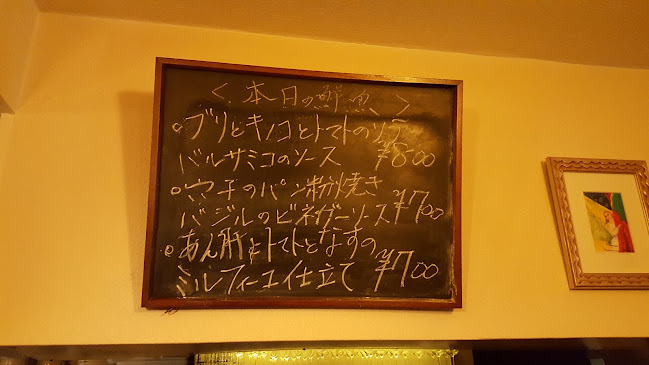 <本日の鮮魚>
○ブリとキノコとトマトのソテー
バルサミコのソース ¥800
○穴子のパン粉焼き
バジルのビネガーソース ¥700
○あん肝とトマトとなすの
ミルフィーユ仕立て ¥700